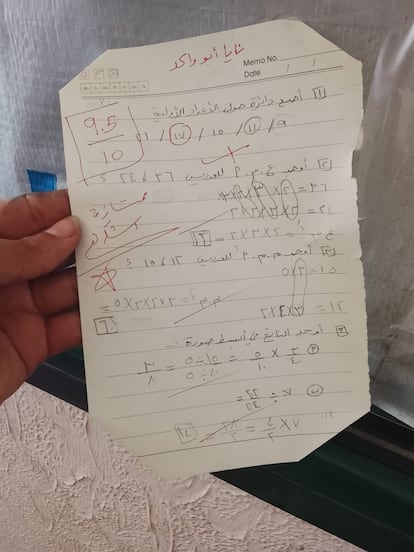 نايا أبو واكد
Memo No.
Date / /
9.5
10
1 أضع دائرة حول الأعداد الأولية
٩ / ١١ / ١٥ / ١٧ / ٢١
2 أوجد ع.م.أ للعددين ٣٦ و ٢٤ ؟
٣٦ = ٢×٢×٣×٣
٢٤ = ٢×٢×٢×٣
ع.م.أ = ٢×٢×٣ = ١٢
ممتازة
أشكرك
3 أوجد م.م.أ للعددين ١٢ و ١٥ ؟
١٥ = ٣×٥
م.م.أ = ٢×٢×٣×٥ =
٦٠
١٢ = ٣×٢×٢
4 أوجد الناتج في أبسط صورة :
٣/٤ × ٥/١٠ = ١٥÷٥/٤٠÷٥ = ٣/٨
٧ ÷ ٢٢/٢٤ =